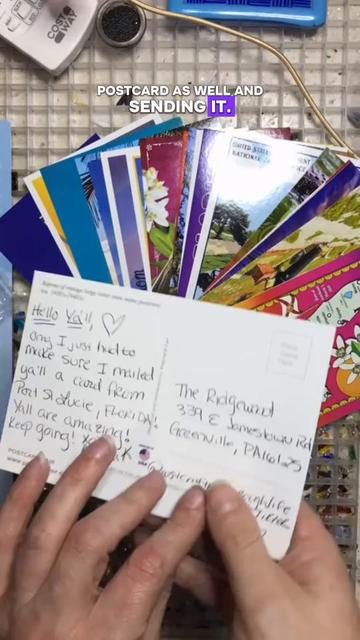 POSTCARD AS WELL AND
SENDING IT.
UNITED STATES
NATIONAL
Hello Ya'll,
omg I just had to
make sure I mailed
ya'll a card from
Port St Lucie, FLORIDA!
Yall are amazing!
Keep going!
POSTCARD
The Ridgewood
339 E Jamestown Rd
Greenville, PA 16125